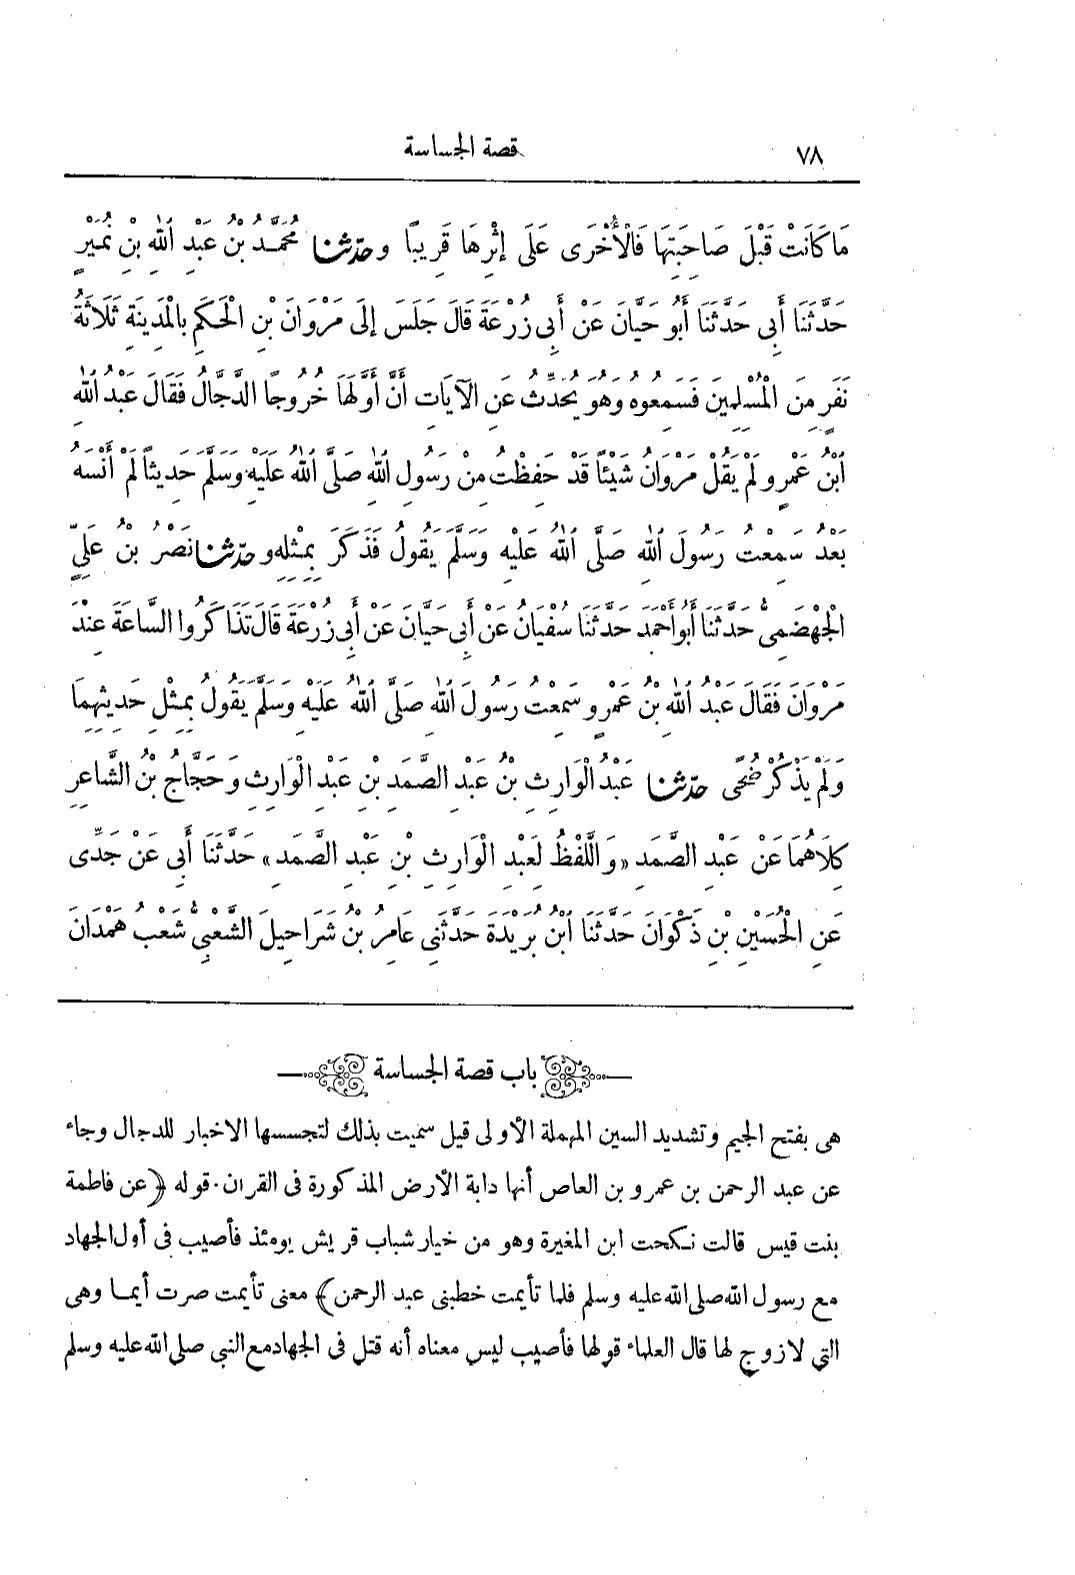 ٧٨ قصة الجساسة
مَا كَانَتْ قَبْلَ صَاحِبَتِهَا فَالْأُخْرَى عَلَى إِثْرِهَا قَرِيبًا وحدّثنا مُحَمَّدُ بْنُ عَبْدِ اللهِ بْنِ نُمَيْرٍ
حَدَّثَنَا أَبِى حَدَّثَنَا أَبُو حَيَّانَ عَنْ أَبِى زُرْعَةَ قَالَ جَلَسَ إِلَى مَرْوَانَ بْنِ الْحَكَمِ بِالْمَدِينَةِ ثَلَاثَةُ
نَفَرٍ مِنَ الْمُسْلِمِينَ فَسَمِعُوهُ وَهُوَ يُحَدِّثُ عَنِ الْآيَاتِ أَنَّ أَوَّلَهَا خُرُوجًا الدَّجَّالُ فَقَالَ عَبْدُ اللهِ
ابْنُ عَمْرٍو لَمْ يَقُلْ مَرْوَانُ شَيْئًا قَدْ حَفِظْتُ مِنْ رَسُولِ اللهِ صَلَّى اللهُ عَلَيْهِ وَسَلَّمَ حَدِيثًا لَمْ أَنْسَهُ
بَعْدُ سَمِعْتُ رَسُولَ اللهِ صَلَّى اللهُ عَلَيْهِ وَسَلَّمَ يَقُولُ فَذَكَرَ بِمِثْلِهِ وحدّثنا نَصْرُ بْنُ عَلِيٍّ
الْجَهْضَمِىُّ حَدَّثَنَا أَبُو أَحْمَدَ حَدَّثَنَا سُفْيَانُ عَنْ أَبِى حَيَّانَ عَنْ أَبِى زُرْعَةَ قَالَ تَذَاكَرُوا السَّاعَةَ عِنْدَ
مَرْوَانَ فَقَالَ عَبْدُ اللهِ بْنُ عَمْرٍو سَمِعْتُ رَسُولَ اللهِ صَلَّى اللهُ عَلَيْهِ وَسَلَّمَ يَقُولُ بِمِثْلِ حَدِيثِهِمَا
وَلَمْ يَذْكُرْ ضُحًى حدّثنا عَبْدُ الْوَارِثِ بْنُ عَبْدِ الصَّمَدِ بْنِ عَبْدِ الْوَارِثِ وَحَجَّاجُ بْنُ الشَّاعِرِ
كِلَاهُمَا عَنْ عَبْدِ الصَّمَدِ «وَاللَّفْظُ لِعَبْدِ الْوَارِثِ بْنِ عَبْدِ الصَّمَدِ» حَدَّثَنَا أَبِى عَنْ جَدِّى
عَنِ الْحُسَيْنِ بْنِ ذَكْوَانَ حَدَّثَنَا ابْنُ بُرَيْدَةَ حَدَّثَنِى عَامِرُ بْنُ شَرَاحِيلَ الشَّعْبِىُّ شَعْبُ هَمْدَانَ
باب قصة الجساسة
هى بفتح الجيم وتشديد السين المهملة الأولى قيل سميت بذلك لتجسسها الاخبار للدجال وجاء
عن عبد الرحمن بن عمرو بن العاص أنها دابة الأرض المذكورة فى القران. قوله ﴿عن فاطمة
بنت قيس قالت نكحت ابن المغيرة وهو من خيار شباب قريش يومئذ فأصيب فى أول الجهاد
مع رسول الله صلى الله عليه وسلم فلما تأيمت خطبنى عبد الرحمن﴾ معنى تأيمت صرت أيما وهى
التي لا زوج لها قال العلماء قولها فأصيب ليس معناه أنه قتل فى الجهاد مع النبى صلى الله عليه وسلم